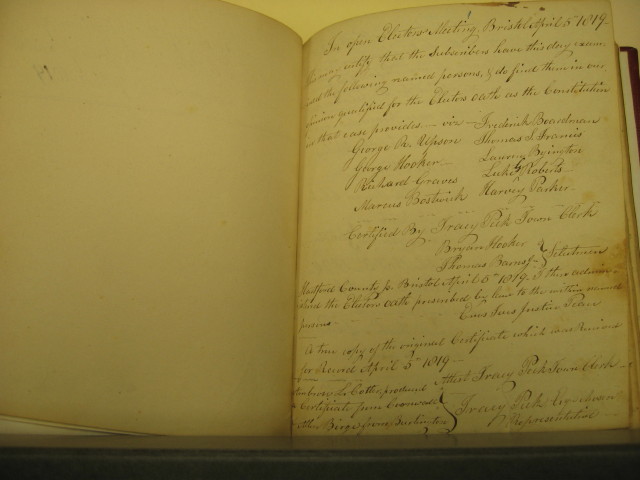 In open Electors Meeting Bristol April 5th 1819.
certify that the Subscribers have this day exam
the following named persons, & do find them in our
qualified for the Electors oath as the Constitution
in that case provides viz Frederick Boardman
George R. Upson Thomas S. Francis
George Hooker Byington
Richard Graves Luke Roberts
Marcus Bostwick Harvey Parker
Certified By Tracy Peck Town Clerk
Bryan Hooker
Thomas Barnes Jr Selectmen
Hartford County ss Bristol April 5th 1819. I then admin
the Electors oath prescribed by law to the within named
persons Justice Peace
A true copy of the original Certificate which was
for Record April 5th 1819
Attest Tracy Peck Town Clerk
Certificate from
from Burlington Tracy Peck Esqr
Representative